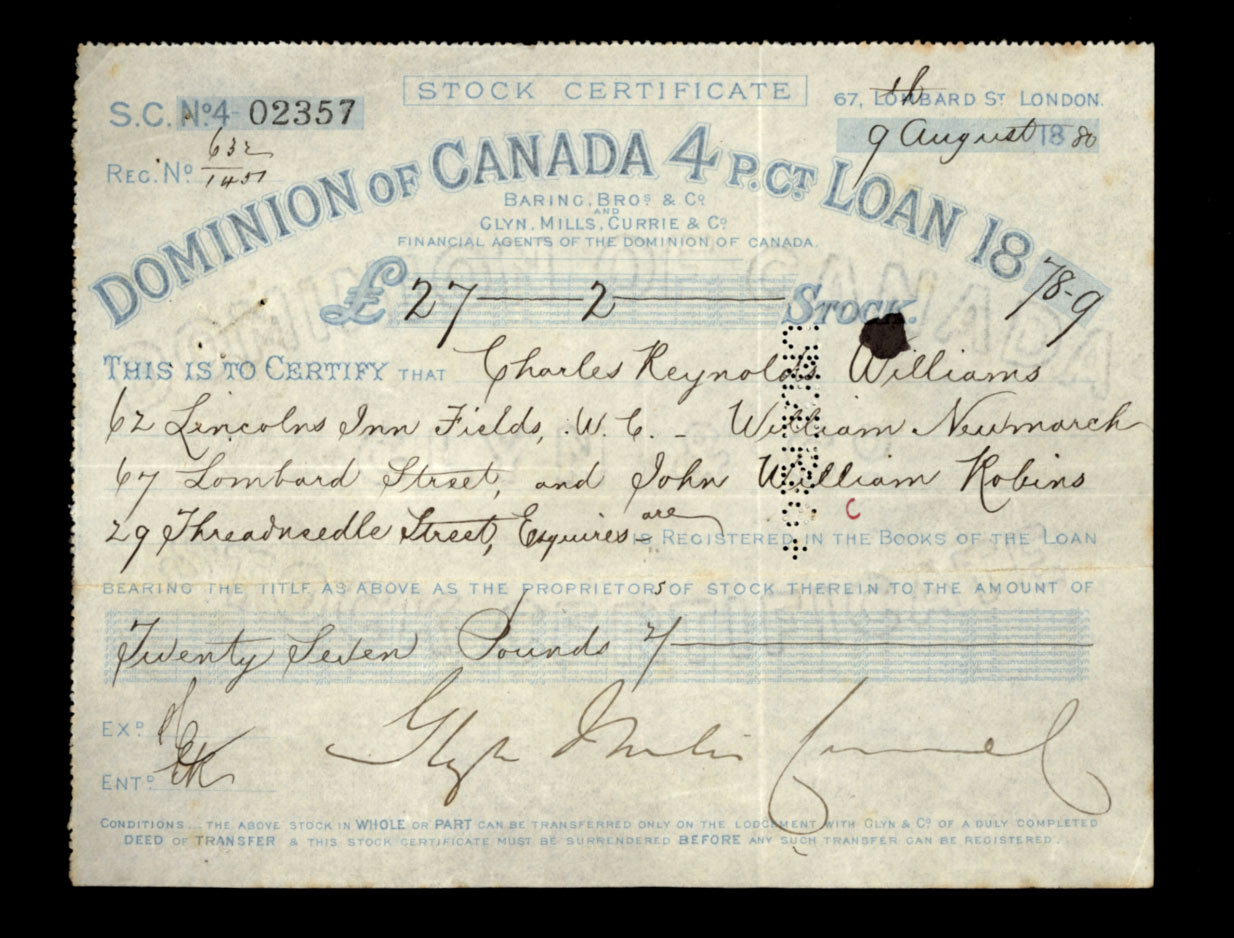 STOCK CERTIFICATE
S.C. No.4 02357
67, LOMBARD ST. LONDON.
9th August 1880
REG. No. 632
1451
DOMINION OF CANADA 4 P.CT. LOAN 1878-9
BARING, BROS. & Co.
AND
GLYN, MILLS, CURRIE & Co.
FINANCIAL AGENTS OF THE DOMINION OF CANADA.
£ 27 — 2 — STOCK.
THIS IS TO CERTIFY THAT Charles Reynolds Williams
62 Lincolns Inn Fields, W.C. - William Newmarch
67 Lombard Street, and John William Robins
29 Threadneedle Street, Esquires are IS REGISTERED IN THE BOOKS OF THE LOAN
BEARING THE TITLE AS ABOVE AS THE PROPRIETORs OF STOCK THEREIN TO THE AMOUNT OF
Twenty Seven Pounds 2/—
EXD.
ENTD.
Glyn Mills Currie & Co
CONDITIONS... THE ABOVE STOCK IN WHOLE OR PART CAN BE TRANSFERRED ONLY ON THE LODGEMENT WITH GLYN & Co. OF A DULY COMPLETED
DEED OF TRANSFER & THIS STOCK CERTIFICATE MUST BE SURRENDERED BEFORE ANY SUCH TRANSFER CAN BE REGISTERED.
C